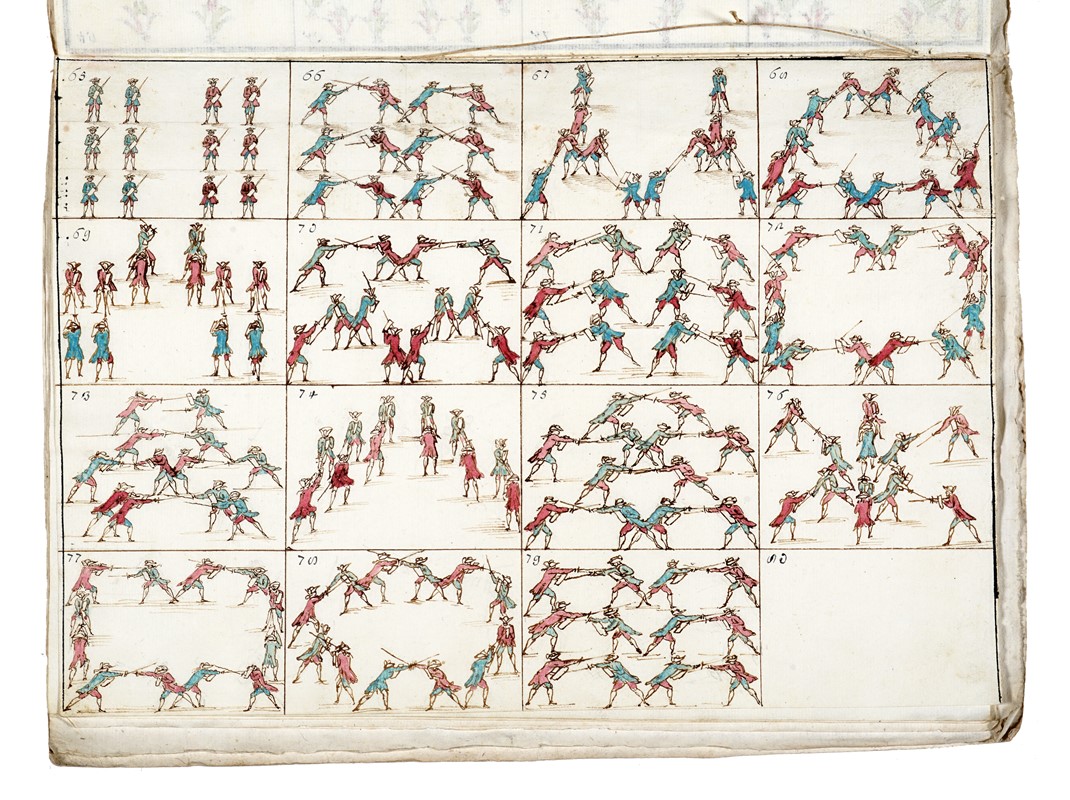 65 66 67 68
69 70 71 72
73 74 75 76
77 78 79 80